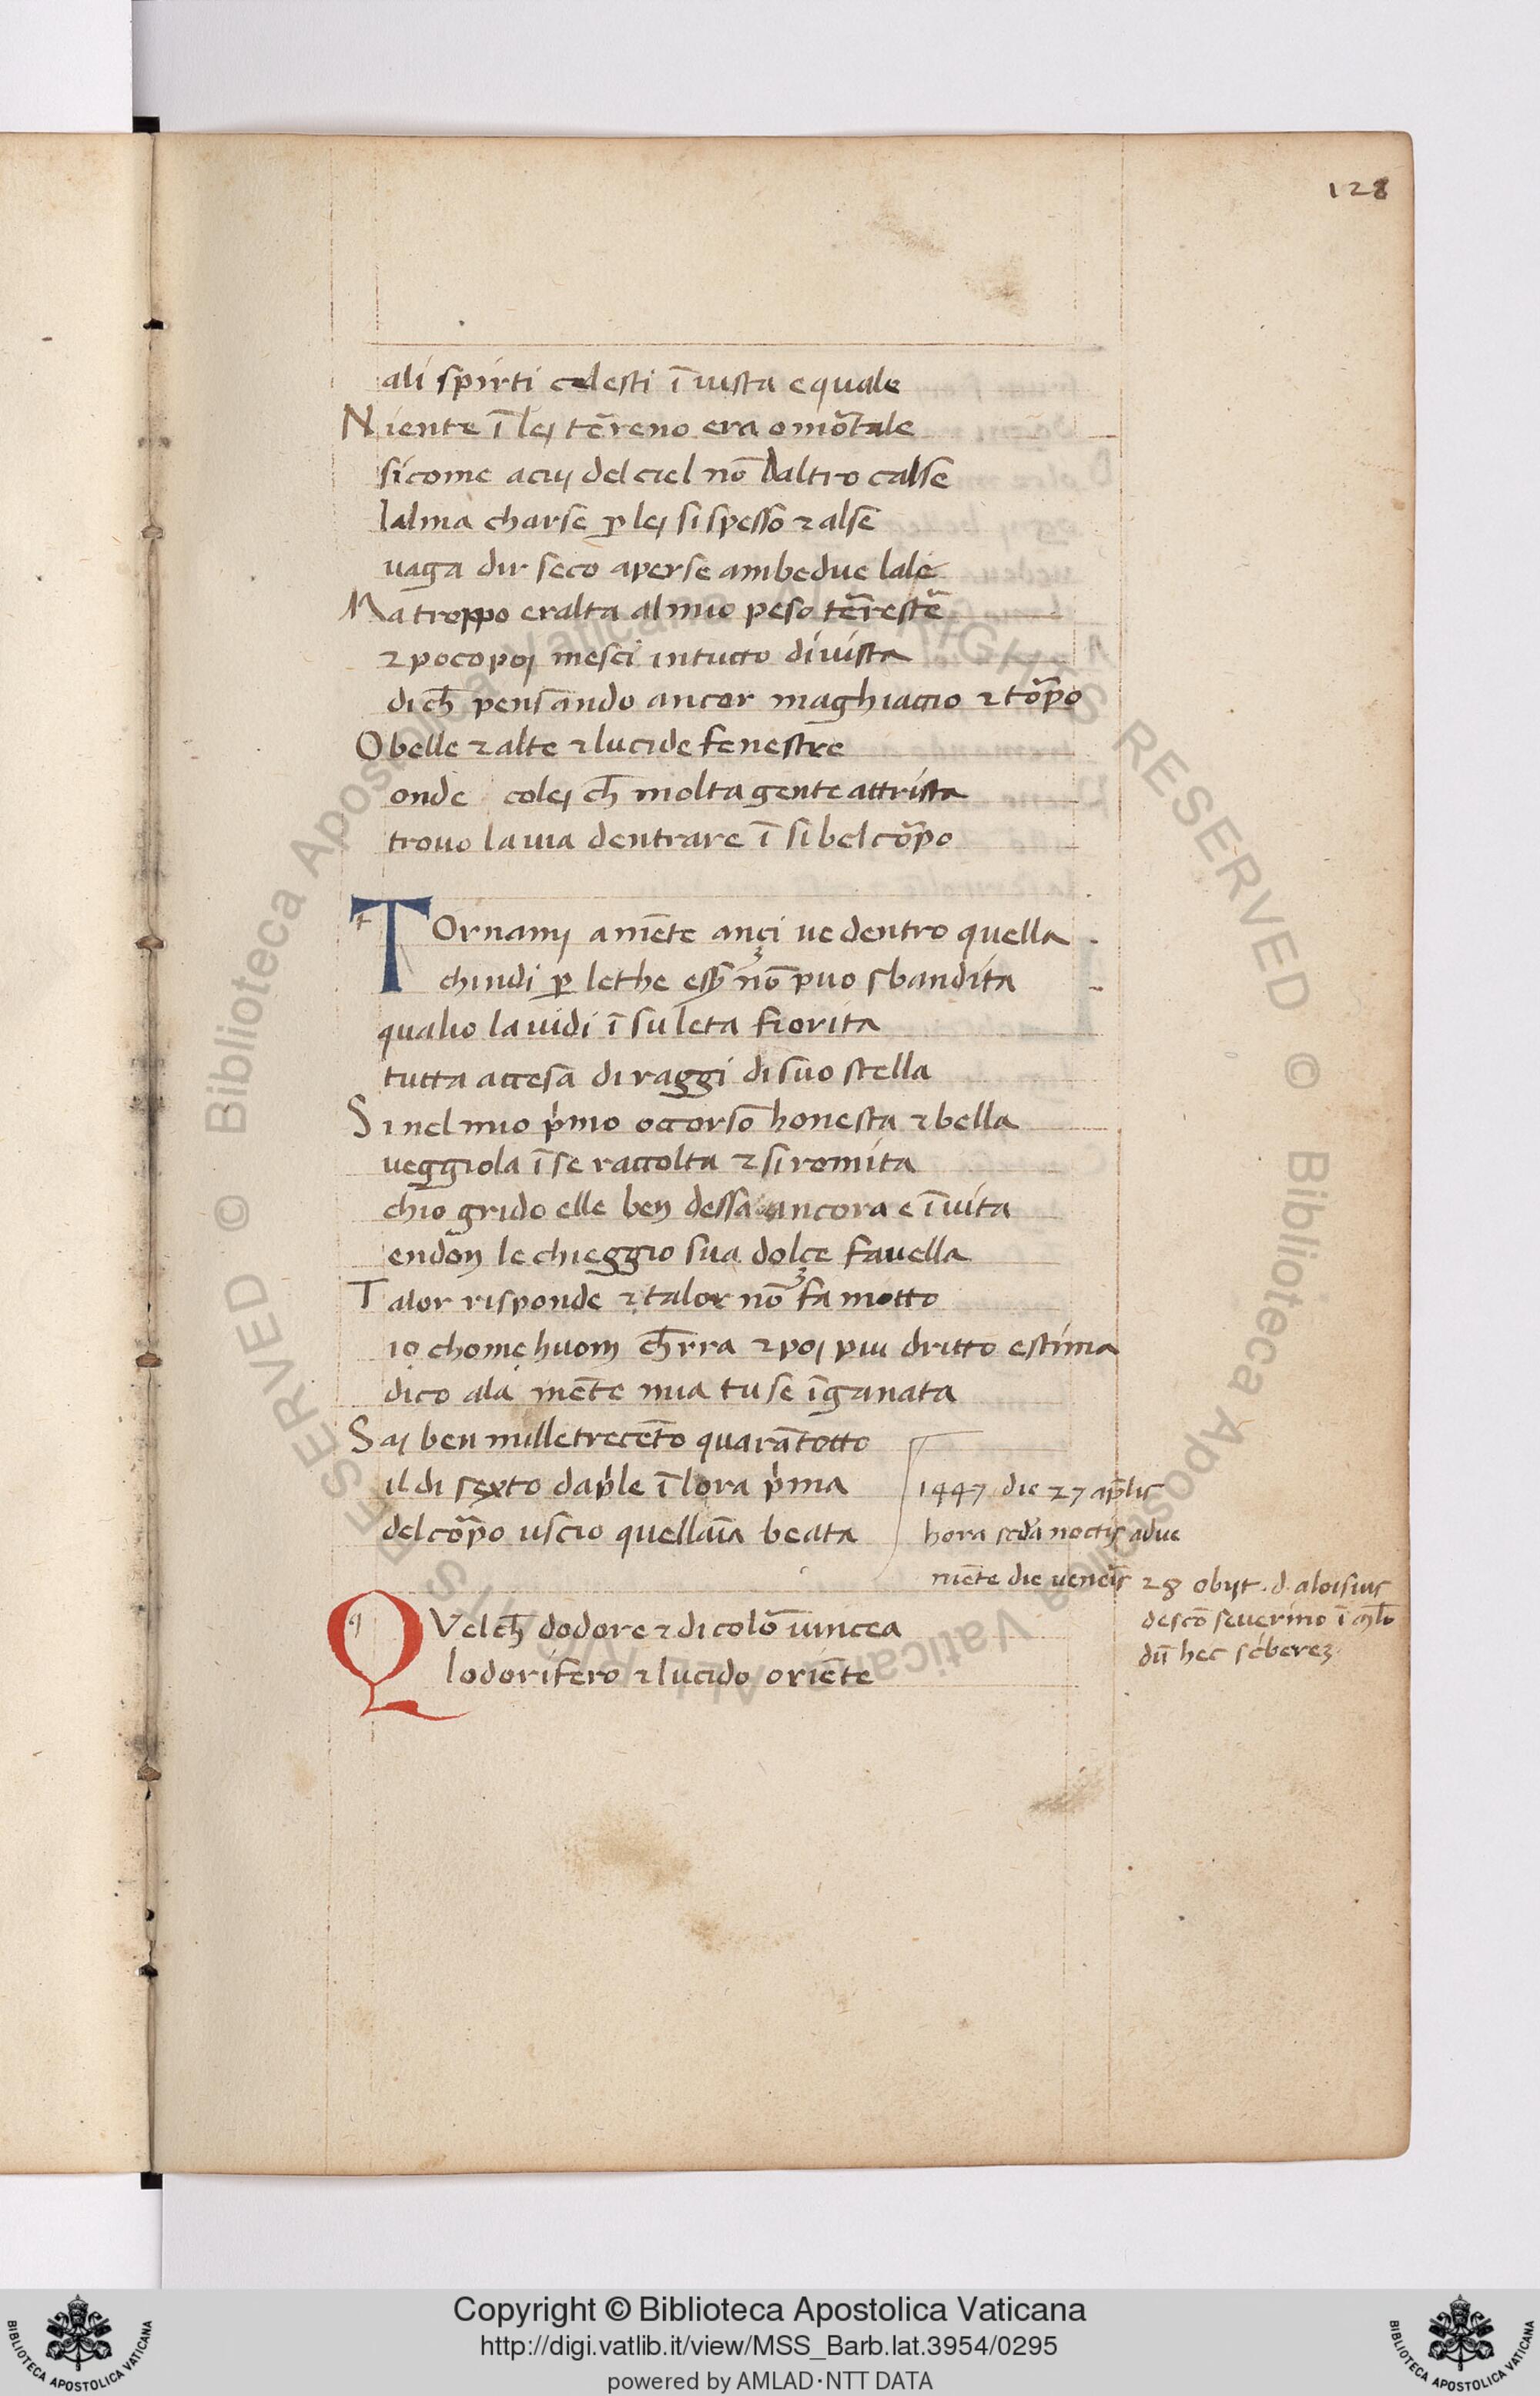 128
ali spirti celesti ī uista equale
Niente ī lej tēreno era o mōtale
si come acuj del ciel nō daltro calse
lalma charse p̱ lej si spesso ⁊ alse
uaga dir seco aperse ambedue lale
Ma troppo eralta al mio peso tērestē
⁊ poco poj mesci in tutto di uista
di ch̄ pensando ancor maghiaccio ⁊ tōpo
O belle ⁊ alte ⁊ lucide fenestre
onde colej ch̄ molta gente attrista
trouo la uia dentrare ī si bel cōpo
TOrnamj a mēte ançi ue dentro quella
chindi p̱ lethe esß nō puo sbandita
qualio la uidi ī su leta fiorita
tutta accesa di raggi di suo stella
Si nel mio p̍mo occorso honesta ⁊ bella
ueggiola ī se raccolta ⁊ si romita
chio grido elle ben dessa ancora e ī uita
en don le chieggio sua dolçe fauella
Talor risponde ⁊ talor nō fa motto
io chome huom ch̄rra ⁊ poj piu dritto estima
dico ala mēte mia tu se īganata
Saj ben mille trecēto quarātotto
il di sexto dap̍le ī lora p̍ma
del cōpo uscio quellaīa beata
1447 die 27 ap̄lis
hora sc̄da noctis adue
niēte die uenēis 28 obijt . d. aloisius
de scō seuerino ī
dū hec sc̍berez
QVel ch̄ dodore ⁊ di colō uincea
lodorifero ⁊ lucido oriēte
© Biblioteca Apostolica Vaticana ALL RIGHTS RESERVED © Biblioteca Apostolica Vaticana ALL RIGHTS RESERVED
BIBLIOTECA APOSTOLICA VATICANA
Copyright © Biblioteca Apostolica Vaticana
http://digi.vatlib.it/view/MSS_Barb.lat.3954/0295
powered by AMLAD·NTT DATA
BIBLIOTECA APOSTOLICA VATICANA